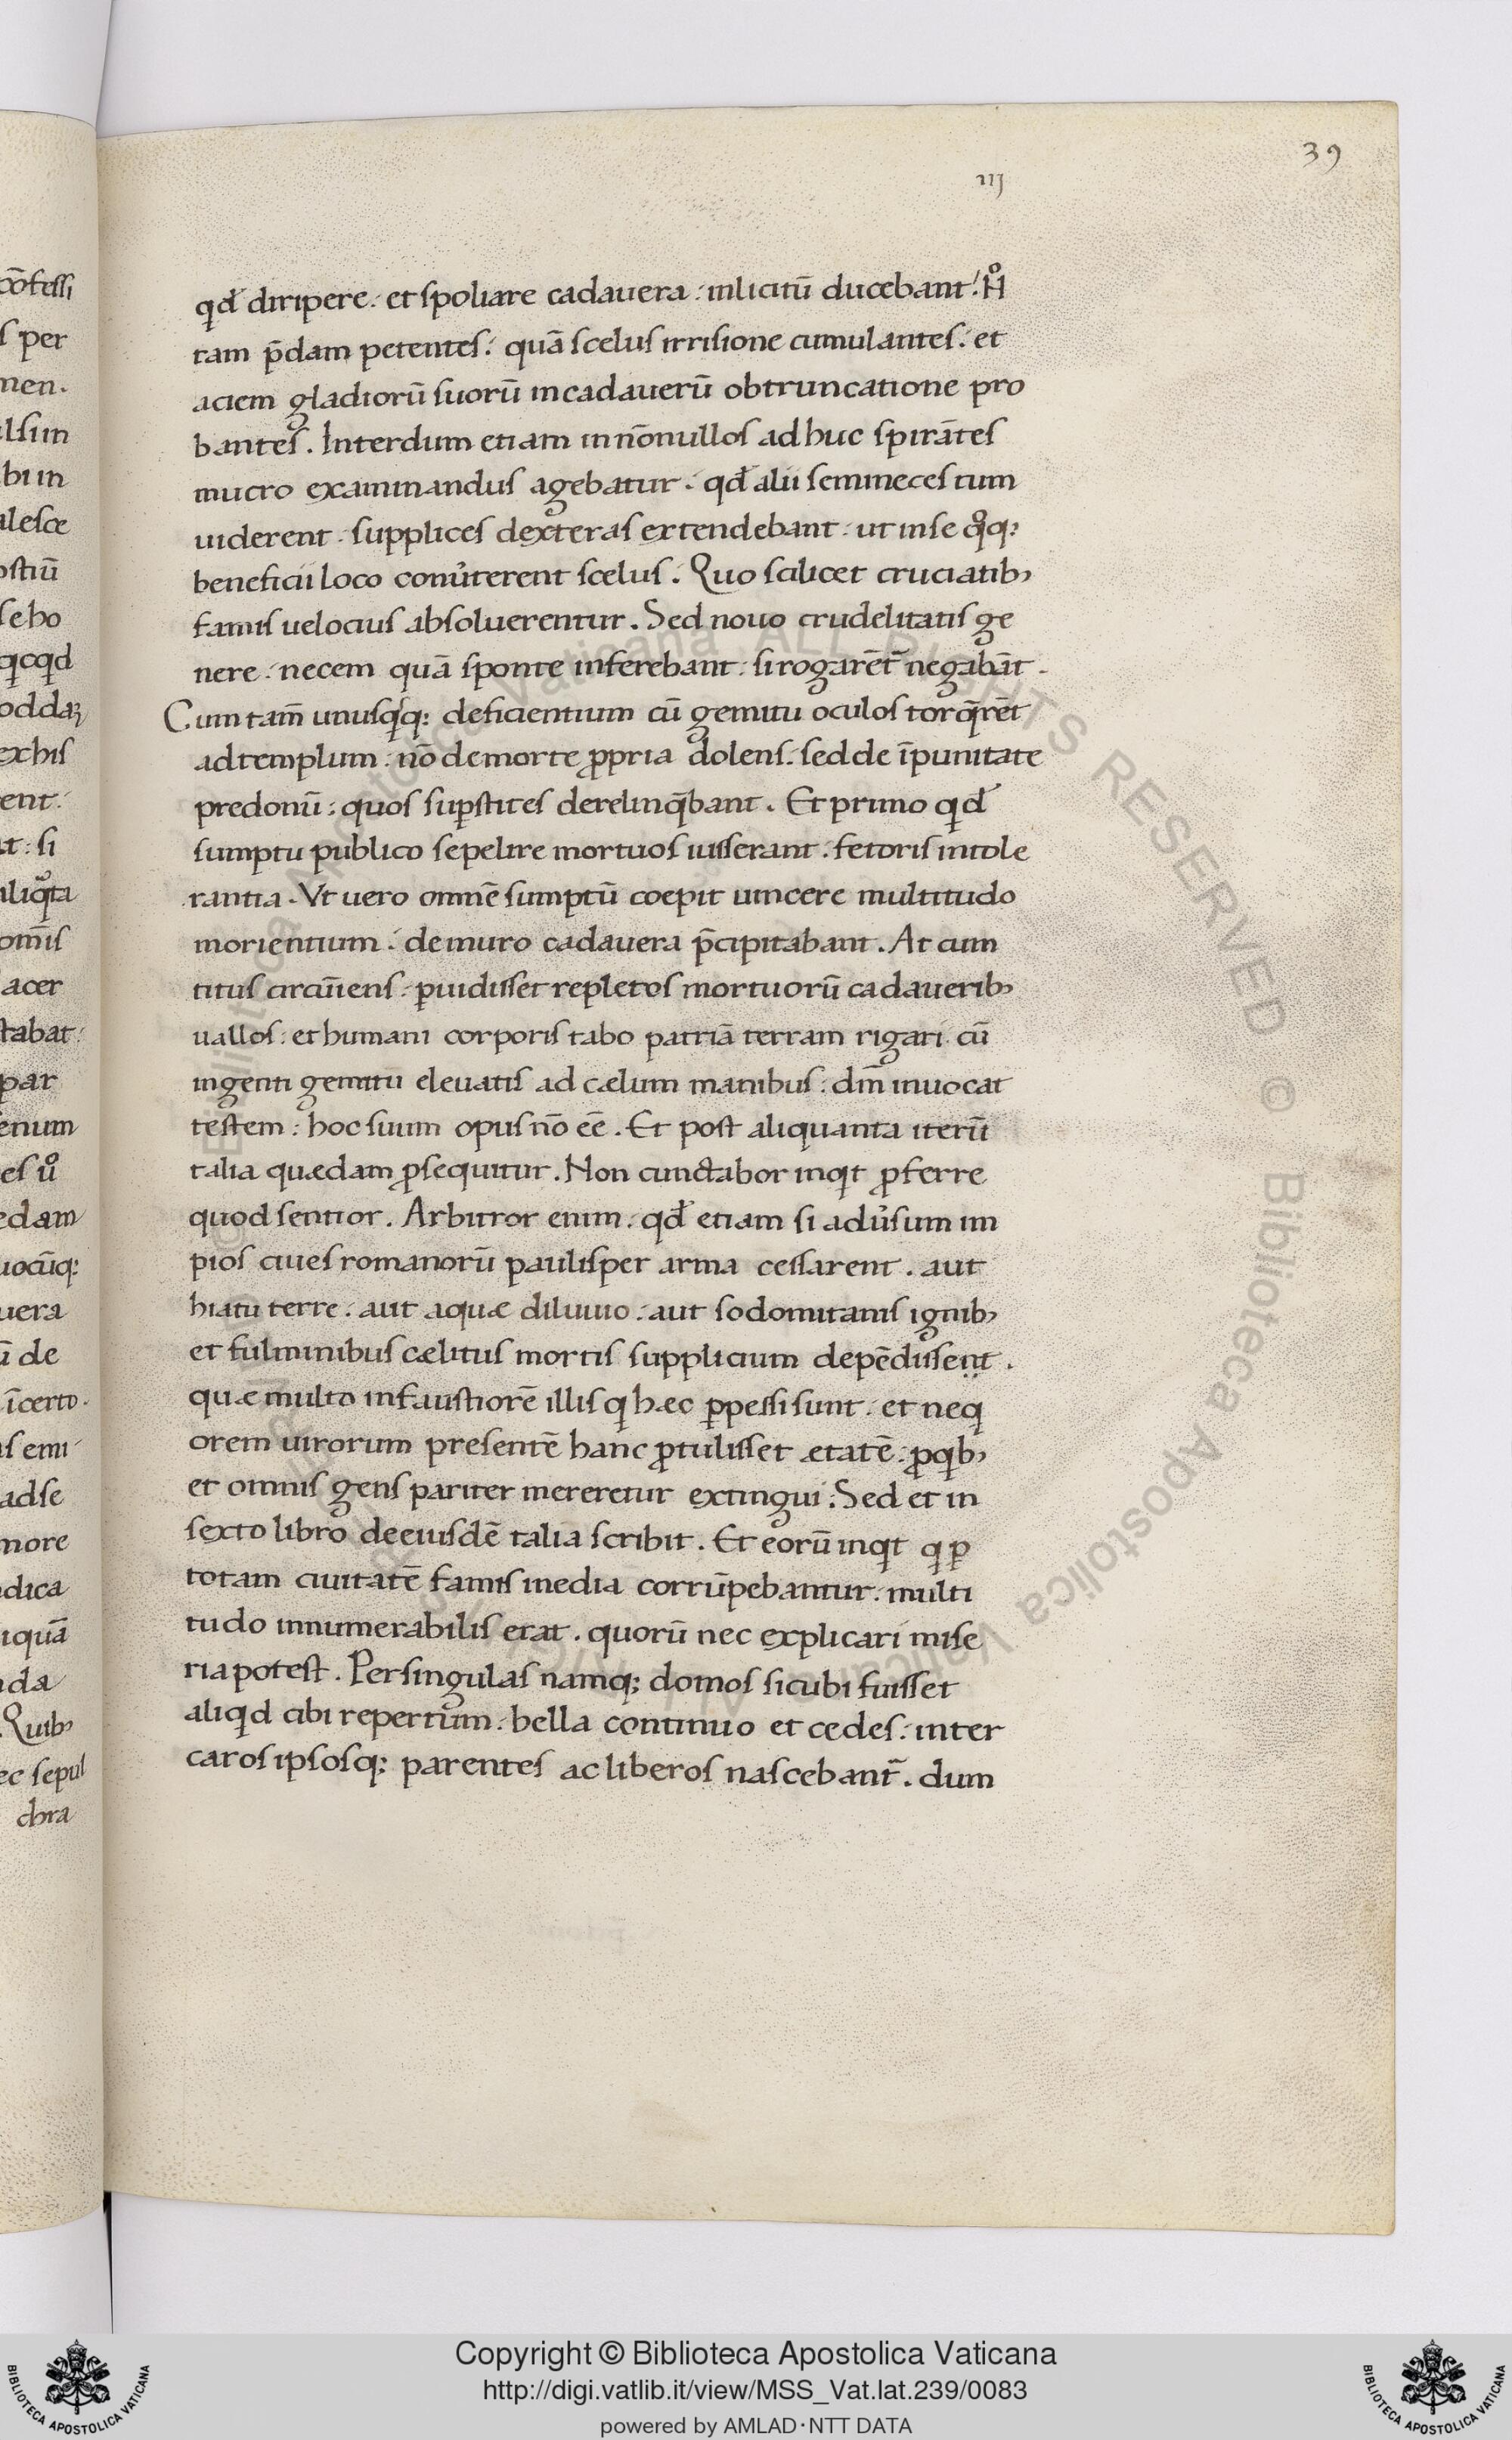 39
iij
qđ diripere. et spoliare cadauera. inlicitū ducebant. Nͦ
tam p̄dam petentes. quā scelus irrisione cumulantes. et
aciem gladiorū suorū in cadauerū obtruncatione pro
bantes. Interdum etiam in nōnullos ad huc spirātes
mucro examinandus agebatur. qđ alii semineces cum
uiderent. supplices dexteras extendebant. ut in se
beneficii loco conu̓terent scelus. Quo scilicet cruciatib;
famis uelocius absoluerentur. Sed nouo crudelitatis ge
nere. necem quā sponte inferebant. si rogarēt̄ negabāt.
Cum tam̄ unusqͥsq; deficientium cū gemitu oculos torq̄rēt
ad templum. nō de morte ꝓpria dolens. sed de īpunitate
predonū: quos suꝑstites derelinq̄bant. Et primo qđ
sumptu publico sepelire mortuos iusserant. fetoris intole
rantia. Vt uero omnē sumptū coepit uincere multitudo
morientium. de muro cadauera p̄cipitabant. At cum
titus circūiens. ꝑuidisset repletos mortuorū cadauerib;
uallos. et humani corporis tabo patriā terram rigari. cū
ingenti gemitū eleuatis ad cælum manibus. dm̄ inuocat
testem: hoc suum opus nō eē. Et post aliquanta iterū
talia quædam ꝓsequitur. Non cunctabor inqͥt ꝓferre
quod sentior. Arbitror enim. qđ etiam si aduu̓sum im
pios ciues romanorū paulisper arma cessarent. aut
hiatu terre. aut aquæ diluuio. aut sodomitanis ignib;
et fulminibus cælitus mortis supplicium depēdissent.
quæ multo infaustiorē illis qͥ hæc ꝑpessi sunt. et neqͥ
orem uirorum presentē hanc ꝓtulisset ætatē. ꝓ qͥb;
et omnis gens pariter mereretur extingui. Sed et in
sexto libro de eiusdē talia scribit. Et eorū inqͥt qͥ ꝑ
totam ciuitatē famis inedia corrūpebantur. multi
tudo innumerabilis erat. quorū nec explicari mise
ria potest. Per singulas namq; domos sicubi fuisset
aliqͥd cibi repertum. bella continuo et cedes. inter
caros ipsosq; parentes ac liberos nascebant̄. dum
cōfessi
s per
men.
ulsim
bi in
alesce
ostiū
se ho
qͥcqͥd
od daʒ
ex his
ent.
t: si
aliqͣta
om̄is
acer
tabat:
par
enum
es uͦ
edam
uocūq:
uera
ū de
īcerto.
is emi
ad se
more
dica
iquā
da
Quib;
ec sepul
chra
Copyright © Biblioteca Apostolica Vaticana
http://digi.vatlib.it/view/MSS_Vat.lat.239/0083
powered by AMLAD·NTT DATA
BIBLIOTECA APOSTOLICA VATICANA
BIBLIOTECA APOSTOLICA VATICANA
© Biblioteca Apostolica Vaticana ALL RIGHTS RESERVED